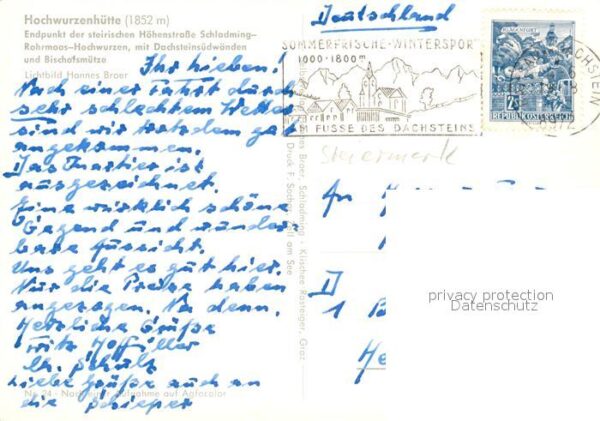 Hochwurzenhütte (1852 m)
Endpunkt der steirischen Höhenstraße Schladming–
Rohrmoos–Hochwurzen, mit Dachsteinsüdwänden
und Bischofsmütze
Lichtbild Hannes Broer
Ihr Lieben!
Nach einer Fahrt durch
sehr schlechtem Wetter
sind wir trotzdem gut
angekommen.
Das Quartier ist
ausgezeichnet.
Eine wirklich schöne
Gegend und wunder-
bare Aussicht.
Uns geht es gut hier.
Nur die Preise haben
angezogen. Na denn.
Herzliche Grüße
Fritz
Schulz
Liebe Grüße auch an
die Schieper
Nr. 24 - Nach einer Aufnahme auf Agfacolor
Broer, Schladming - Klischee Rosteiger, Graz
Druck F. Sochor, Zell am See
Deutschland
SOMMERFRISCHE-WINTERSPORT
1000-1800m
AM FUSSE DES DACHSTEINS
DACHSTEIN
KLAGENFURT
2S
REPUBLIK ÖSTERREICH
Steiermark
An
D
1
He
privacy protection
Datenschutz